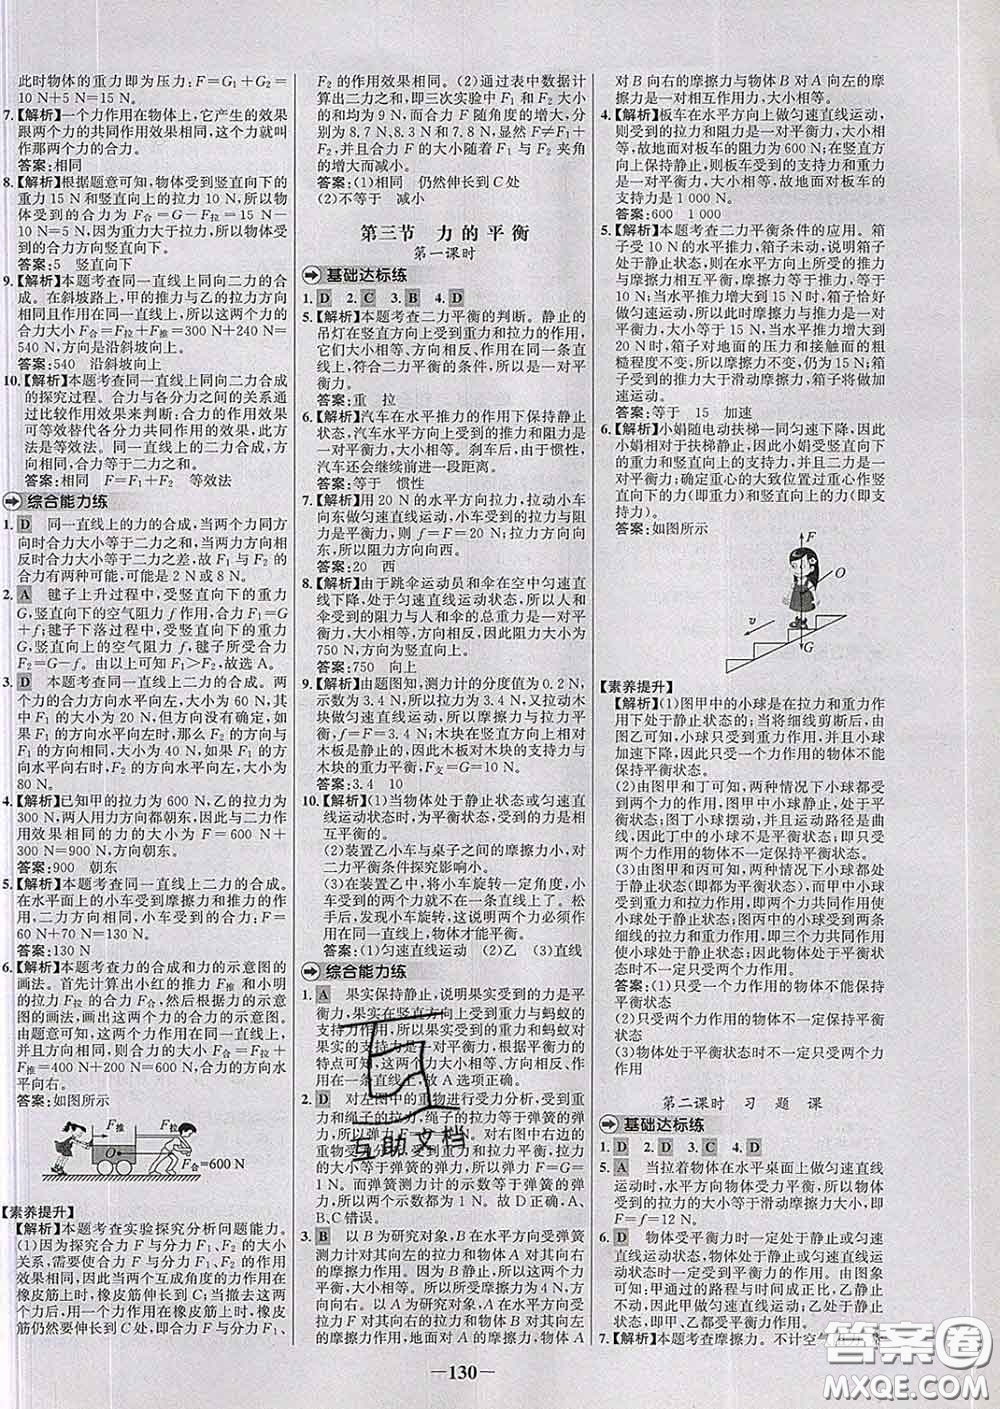 此时物体的重力即为压力:F=G₁+G₂=
10 N+5 N=15 N。
7.【解析】一个力作用在物体上,它产生的效果
跟两个力的共同作用效果相同,这个力就叫
作那两个力的合力。
答案:相同
8.【解析】根据题意可知,物体受到竖直向下的
重力 15 N 和竖直向上的拉力 10 N,所以物
体受到的合力为F合=G-F拉=15 N-
10 N=5 N;因为重力大于拉力,所以所受的
合力方向竖直向下。
答案:5 竖直向下
9.【解析】本题考查同一直线上同向二力的合
成。在斜坡路上,甲的推力与乙的拉力方向
相同且作用在同一直线上,所以这两个力的
合力大小F合=F拉+F推=300 N+240 N=
540 N,方向是沿斜坡向上。
答案:540 沿斜坡向上
10.【解析】本题考查同一直线上同向二力合成
的探究过程。合力与各分力之间的关系通
过比较作用效果来判断;合力的作用效果
可等效替代各分力共同作用的效果,此方
法是等效法。同一直线上的二力合成,方
向相同,合力等于二力之和。
答案:相同 F=F₁+F₂ 等效法
综合能力练
1. D 同一直线上的力的合成,当两个力同方
向时合力大小等于二力之和,当两力方向相
反时合力大小等于二力之差,故 F₁ 与 F₂ 的
合力有两种可能,可能是2 N或8 N。
2. A 毽子上升过程中,受竖直向下的重力
G,竖直向下的空气阻力 f 作用,合力 F₁=G
+f;毽子下落过程中,受竖直向下的重力
G,竖直向上的空气阻力 f,毽子所受合力
F₂=G-f。由以上可知F₁>F₂,故选 A。
3. D 本题考查同一直线上二力的合成。两
个力的合力方向水平向左,大小为 60 N,其
中 F₁ 的大小为 20 N,但方向没有确定,如果
F₁ 的方向水平向左时,那么 F₂ 的方向与
F₁ 的方向相同,大小为 40 N,如果 F₁ 的方
向水平向右时,F₂ 的方向水平向左,大小为
80 N。
4.【解析】已知甲的拉力为 600 N,乙的拉力为
300 N,两人用力方向都朝东,因此与二力作
用效果相同的力的大小为 F=600 N+
300 N=900 N,方向朝东。
答案:900 朝东
5.【解析】本题考查同一直线上二力的合成。
在水平面上的小车受到摩擦力和推力的作
用,二力方向相同,小车受到的合力:F=
60 N+70 N=130 N。
答案:130 N
6.【解析】本题考查力的合成和力的示意图的
画法。首先计算出小红的推力 F推 和小明
的拉力 F拉 的合力 F合,然后根据力的示意
图的画法,画出这两个力的合力的示意图。
由题意可知,这两个力作用在同一直线上,
并且方向相同,合力的大小 F合=F拉+
F推=400 N+200 N=600 N,合力的方向水
平向右。
答案:如图所示
F推 F拉
O
F合=600 N
【素养提升】
【解析】本题考查实验探究分析问题能力。
(1)因为探究合力 F 与分力 F₁、F₂ 的大小
关系,需要使合力 F 与两个分力 F₁、F₂ 的作用
效果相同,因此当两个互成角度的力作用在
橡皮筋上时,橡皮筋伸长到 C 处;当撤去这两
个力后,用一个力作用在橡皮筋上时,橡皮
筋仍然要伸长到 C 处,即合力 F 与分力F₁、
F₂ 的作用效果相同。(2)通过表中数据计
算出二力之和,即三次实验中 F₁ 和 F₂ 大小
的和均为 9 N,而合力 F 随角度的增大,分
别为 8.7 N,8.3 N 和 7.8 N,显然 F≠F₁+
F₂,并且合力 F 的大小随 F₁ 与 F₂ 夹角
的增大而减小。
答案:(1)相同 仍然伸长到 C 处
(2)不等于 减小
第三节 力的平衡
第一课时
基础达标练
1. D 2. C 3. B 4. D
5.【解析】本题考查二力平衡的判断。静止的
吊灯在竖直方向上受到重力和拉力的作用,
它们大小相等、方向相反、作用在同一条直
线上,符合二力平衡的条件,所以是一对平
衡力。
答案:重 拉
6.【解析】汽车在水平推力的作用下保持静止
状态,汽车水平方向上受到的推力和摩擦力
是一对平衡力,大小相等。刹车后,由于惯性,
汽车还会继续前进一段距离。
答案:等于 惯性
7.【解析】用 20 N 的水平方向拉力,拉动小车
向东做匀速直线运动,小车受到的拉力与阻
力是平衡力,则 f=F=20 N;拉力方向向
东,所以阻力方向向西。
答案:20 西
8.【解析】由于跳伞运动员和伞在空中匀速直
线下降,处于匀速直线运动状态,所以人和
伞受到的阻力与人和伞的总重力是一对平
衡力,大小相等、方向相反,所以阻力大小为
750 N,方向为竖直向上。
答案:750 向上
9.【解析】由题图知,测力计的分度值为 0.2 N,
示数为 3.4 N,所以拉力为 3.4 N,又拉动木
块做匀速直线运动,所以摩擦力与拉力平
衡,f=F=3.4 N;木块在竖直方向上相对
木板是静止的,木板对木块的支持力与
木块的重力平衡,F支=G=10 N。
答案:3.4 10
10.【解析】(1)当物体处于静止状态或匀速直
线运动状态时,为平衡状态,受到的力是相
互平衡的。
(2)装置乙小车与桌子之间的摩擦力小,对
二力平衡条件探究影响小。
(3)在装置乙中,将小车旋转一定角度,小车
受到的两个力就不在一条直线上了。松
手后,发现小车旋转,说明这两个力必须作
用在同一直线上,物体才能平衡。
答案:(1)匀速直线运动 (2)乙 (3)直线
综合能力练
1. A 果实保持静止,说明果实受到的力是平
衡力,果实在竖直方向上受到重力与蚂蚁的
支持力作用,所以果实受到的重力和蚂蚁对
果实的支持力是一对平衡力,根据平衡力的
特点可知,这两个力大小相等、方向相反、作
用在一条直线上,故 A 选项正确。
2. D 对左图中的重物进行受力分析,受到重
力和绳子的拉力,绳子的拉力等于弹簧的弹
力,所以弹力 
故弹簧测力计
大小等于弹簧的弹力;对右图中的重物进
行受力分析,受到重力和弹簧的拉力,所以
拉力的大小等于重力的大小,故弹簧的弹力
为G。而弹簧测力计的示数等于弹簧的弹
力,所以两个示数都是相等。故 D 正确,A、
B、C 错误。
3. B 以 B 为研究对象,B 在水平方向受弹簧
测力计对其向左的拉力和物体 A 对其向右
的摩擦力作用。因 B 静止,所以这两个力为
平衡力,大小相等,所以摩擦力大小为 4 N,方
向向右。以 A 为研究对象,A 在水平方向受
拉力 F 和地面对其向左及物体 B 对其向左
的摩擦力作用,地面对 A 的摩擦力,物体 A
对 B 向右的摩擦力与物体 B 对 A 向左的摩
擦力是一对相互作用力,大小相等。
4.【解析】板车在水平方向上做匀速直线运动,
则受到的拉力和阻力是一对平衡力,大小相
等,故地面对板车的阻力为 600 N;在竖直
方向上保持静止,则板车受到的支持力和重
力是一对平衡力,大小相等,故地面对板车
的支持力大小是 1 000 N。
答案:600 1 000
5.【解析】本题考查二力平衡条件的应用。箱子
受 10 N 的水平推力,箱子未动,说明箱子
此时处于静止状态,受到的推力与摩擦力
是一对平衡力,大小相等,所以推力大小等
于 10 N;当水平推力增大到 15 N 时,箱子恰好
做匀速直线运动,箱子受到平衡力作用,摩
擦力大小等于推力大小,所以此时摩擦力大
小等于 15 N,当水平推力增大到
20 N 时,箱子对地面的压力和接触面的粗
糙程度不变,所以摩擦力不变,仍为 15 N,箱
子受到的推力大于滑动摩擦力,所以箱子做
加速运动。
答案:等于 15 加速
6.【解析】小娟随电动扶梯一同匀速下降,因此
小娟相对于扶梯静止,因此小娟受竖直向下
的重力和竖直向上的支持力,并且二力是一对
平衡力;确定重心的大致位置过重心作竖
直向下的力(即重力)和竖直向上的力(即支
持力)。
答案:如图所示
F
O
v
G
【素养提升】
【解析】(1)图甲中的小球是在拉力和重力作
用下处于静止状态的;当将细线剪断后,由
图乙可知,小球只受到重力作用,并且小球
加速下降,因此只受一个力作用的物体不能
保持平衡状态。
(2)由图甲和丁可知,两种情况下小球都
受到两个力的作用,但图甲中小球是静
止的;图丁小球摆动,并且运动路径是曲
线,因此丁中的小球不是平衡状态;因此受
两个力作用的物体不一定保持平衡状态。
(3)由图甲和丙可知,小球都处于静止
状态(即都为平衡状态),而图甲中小球
受到重力和拉力作用,即小球受两个力作
用处于静止状态;图丙中的小球受到重力和
两个细线的拉力作用,即小球在三个力作用
下处于静止状态;因此物体处于平衡状态
时不一定只受两个力作用。
答案:(1)只受一个力作用的物体不能保持
平衡状态
(2)只受两个力作用的物体不一定保持平衡
状态
(3)物体处于平衡状态时不一定只受两个力
作用
第二课时 习题课
基础达标练
1. D 2. D 3. C 4. D
5. A 当拉着物体在水平桌面上做匀速直线
运动时,物体受到的滑动摩擦力与拉力是平
衡力,所以拉力的大小等于滑动摩擦力,即
F=f=12 N。
6. D 物体受平衡力时一定处于静止或匀速
直线运动状态,处于静止或匀速直线运动状
态时一定受到平衡力的作用。由图象
可知:甲通过的路程与时间成正比,乙处于
静止,因此甲做匀速直线运动;乙处于静止状
态,即甲、乙都处于平衡状态。
7.【解析】本题考查摩擦力。不计空气
130
互助文档
答案圈
MXQE.COM